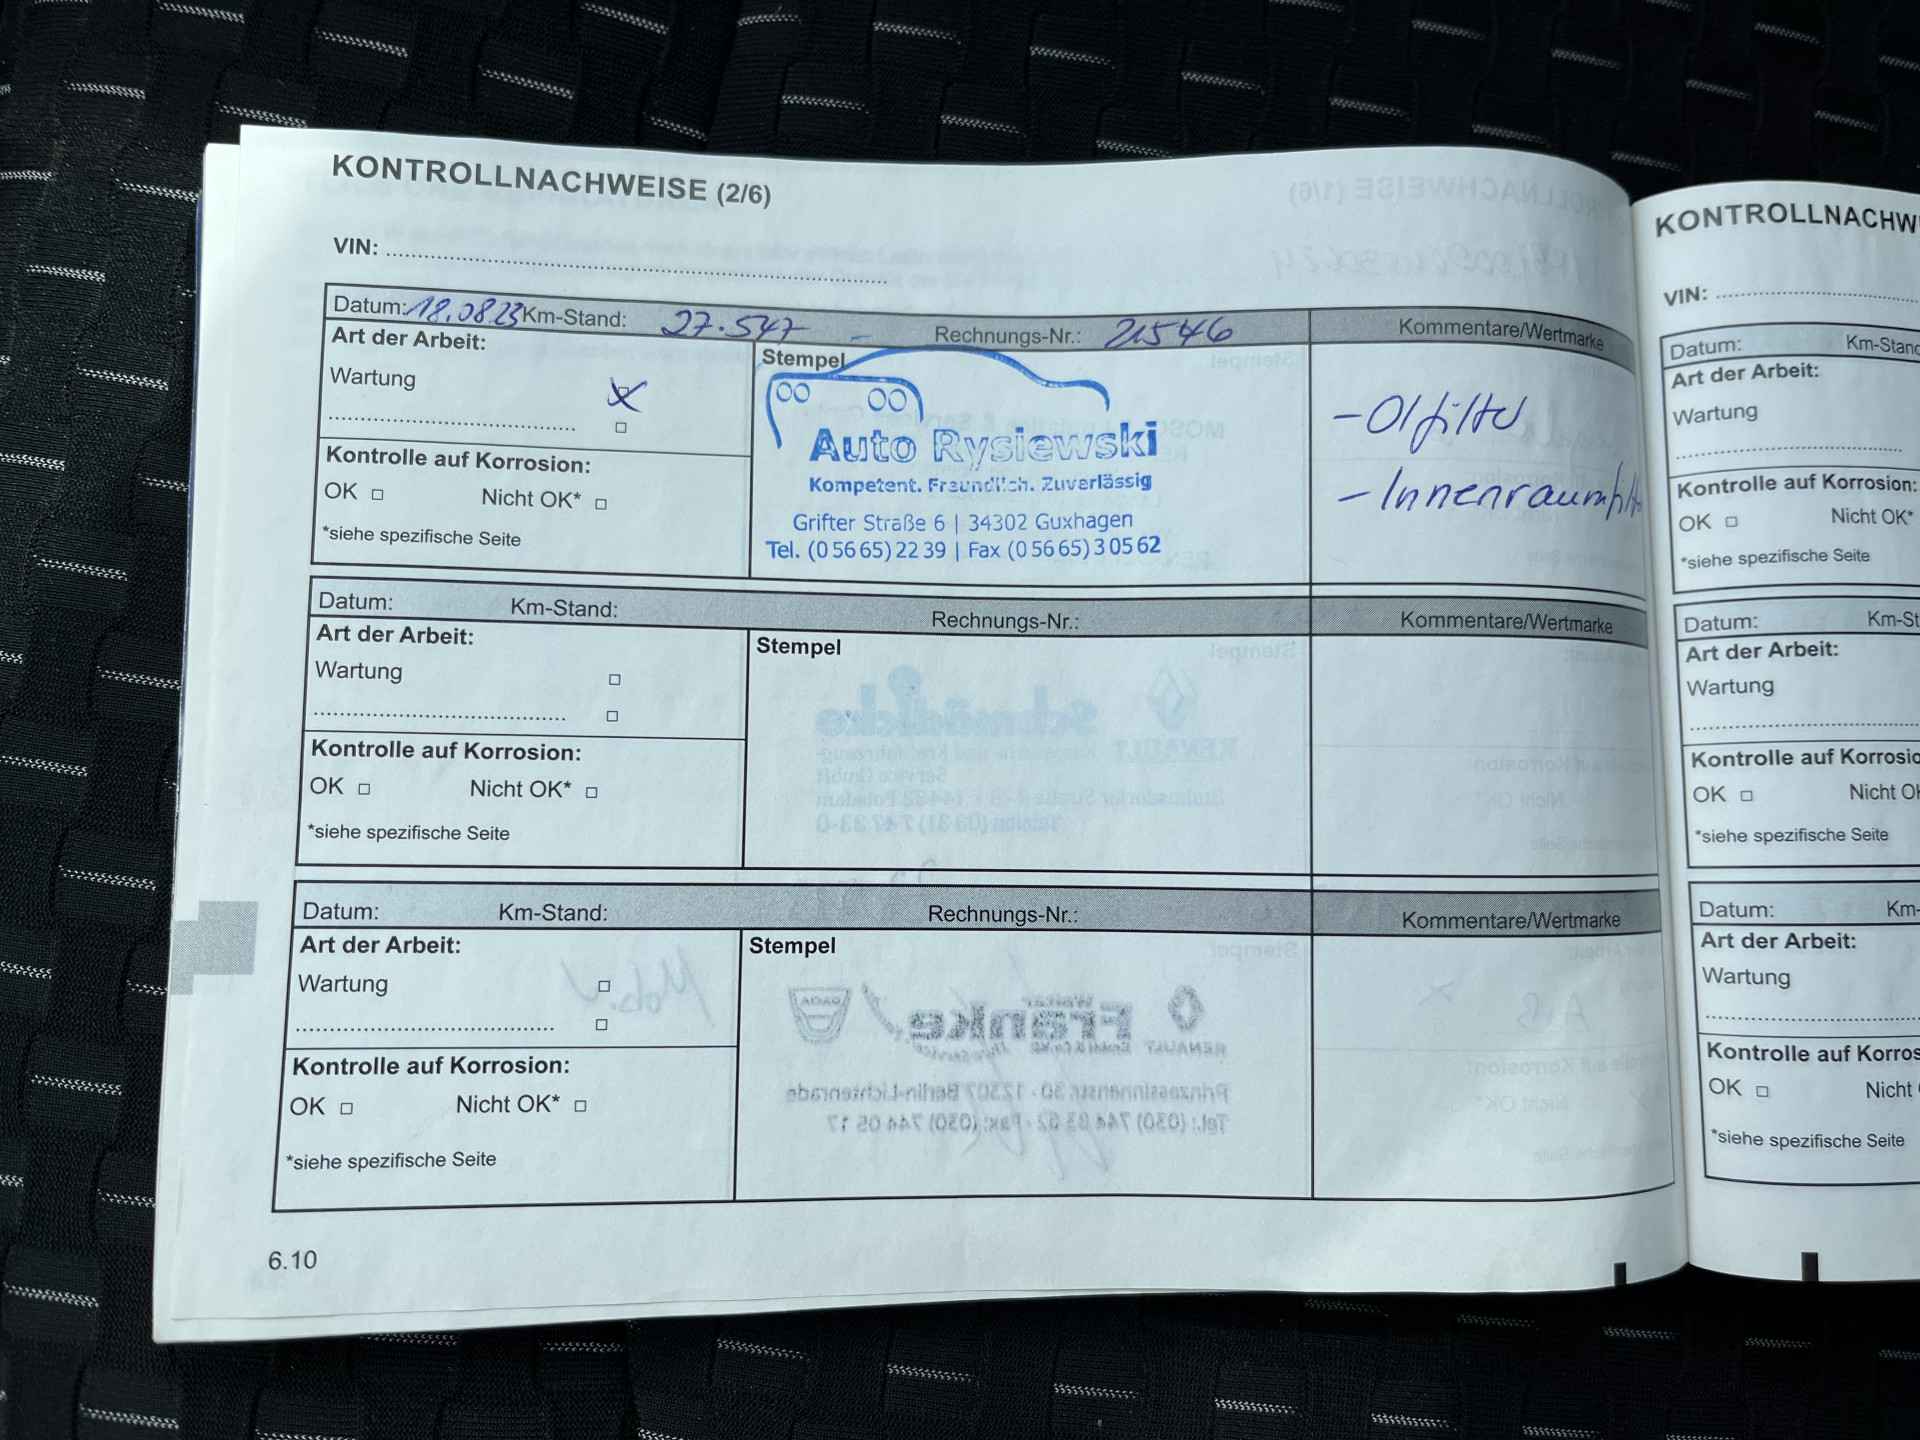 KONTROLLNACHWEISE (2/6)
VIN:
Datum: 18.08.23 Km-Stand: 27.547 Rechnungs-Nr.: 21546 Kommentare/Wertmarke
Art der Arbeit:
Wartung
Kontrolle auf Korrosion:
OK Nicht OK*
*siehe spezifische Seite
Stempel
Auto Rysiewski
Kompetent. Freundlich. Zuverlässig
Grifter Straße 6 | 34302 Guxhagen
Tel. (0 56 65) 22 39 | Fax (0 56 65) 3 05 62
- Ölfilter
- Innenraumfilter
Datum: Km-Stand: Rechnungs-Nr.: Kommentare/Wertmarke
Art der Arbeit:
Wartung
Kontrolle auf Korrosion:
OK Nicht OK*
*siehe spezifische Seite
Stempel
Datum: Km-Stand: Rechnungs-Nr.: Kommentare/Wertmarke
Art der Arbeit:
Wartung
Kontrolle auf Korrosion:
OK Nicht OK*
*siehe spezifische Seite
Stempel
6.10
KONTROLLNACHW
VIN:
Datum: Km-Stand
Art der Arbeit:
Wartung
Kontrolle auf Korrosion:
OK Nicht OK*
*siehe spezifische Seite
Datum: Km-St
Art der Arbeit:
Wartung
Kontrolle auf Korrosio
OK Nicht OK
*siehe spezifische Seite
Datum: Km-
Art der Arbeit:
Wartung
Kontrolle auf Korros
OK Nicht
*siehe spezifische Seite